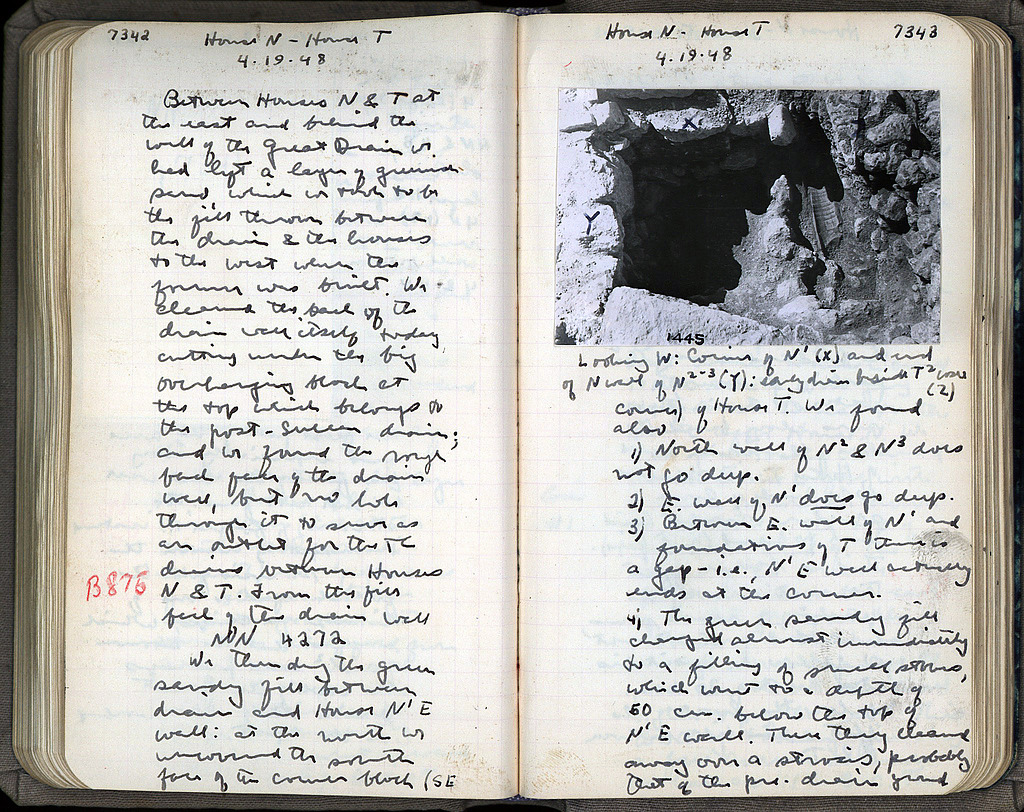 7342
House N - House T
4.19.48
Between Houses N & T at
the east and behind the
wall of the Great Drain we
had left a layer of greenish
sand which we took to be
the fill thrown between
the drain & the houses
to the west when the
former was built. We
cleaned the back of the
drain wall itself today,
cutting under the big
overhanging block at
the top which belongs to
the post-Sullan drain;
and we found the rough
back face of the drain
wall, but no hole
through it to serve as
an outlet for the TC
drains between Houses
B875
N & T. From the fill
back of the drain wall
NN 4272
We then dug the green
sandy fill between
drain and House N' E
wall: at the north we
uncovered the south
face of the corner block (SE
7343
House N - House T
4.19.48
X
Y
1445
Looking W: Corner of N' (X) and end
of N wall of N²⁻³ (Y): early drain beside T²
(Z)
corner) of House T. We found
also
1) North wall of N² & N³ does
not go deep.
2) E. wall of N' does go deep.
3) Between E. wall of N' and
foundations of T there is
a gap - i.e., N' E wall actually
ends at the corner.
4) The green sandy fill
changed almost immediately
to a filling of small stones,
which went to a depth of
60 cm. below the top of
N' E wall. Then they cleaned
away over a strosis, probably
that of the pre-drain ground